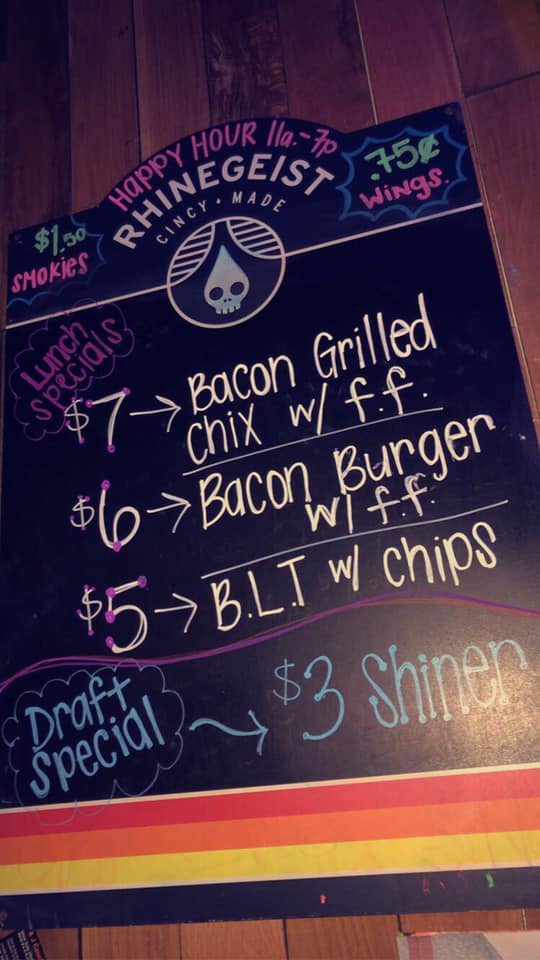 HAPPY HOUR 11a.-7p
RHINEGEIST
CINCY • MADE
$1.50
SMOKIES
.75¢
WINGS.
Lunch
Specials
$7 → Bacon Grilled
Chix w/ f.f.
$6 → Bacon Burger
w/ f.f.
$5 → B.L.T w/ chips
Draft
Special
$3 Shiner